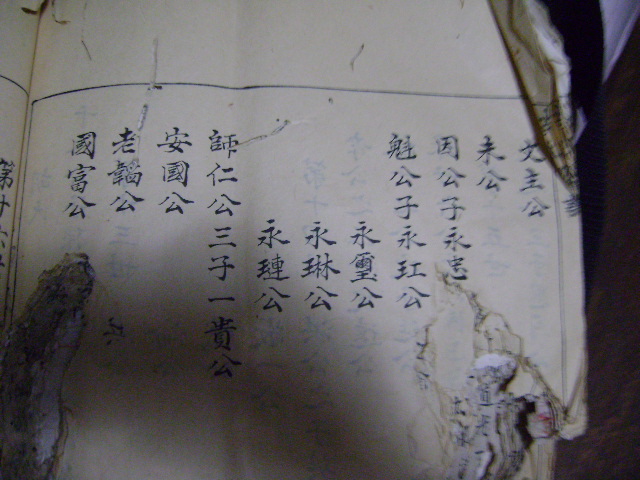 文主公
未公
因公子永忠
魁公子永玒公
永璽公
永琳公
永璉公
師仁公三子一貴公
安國公
老韜公
國富公
第廿六